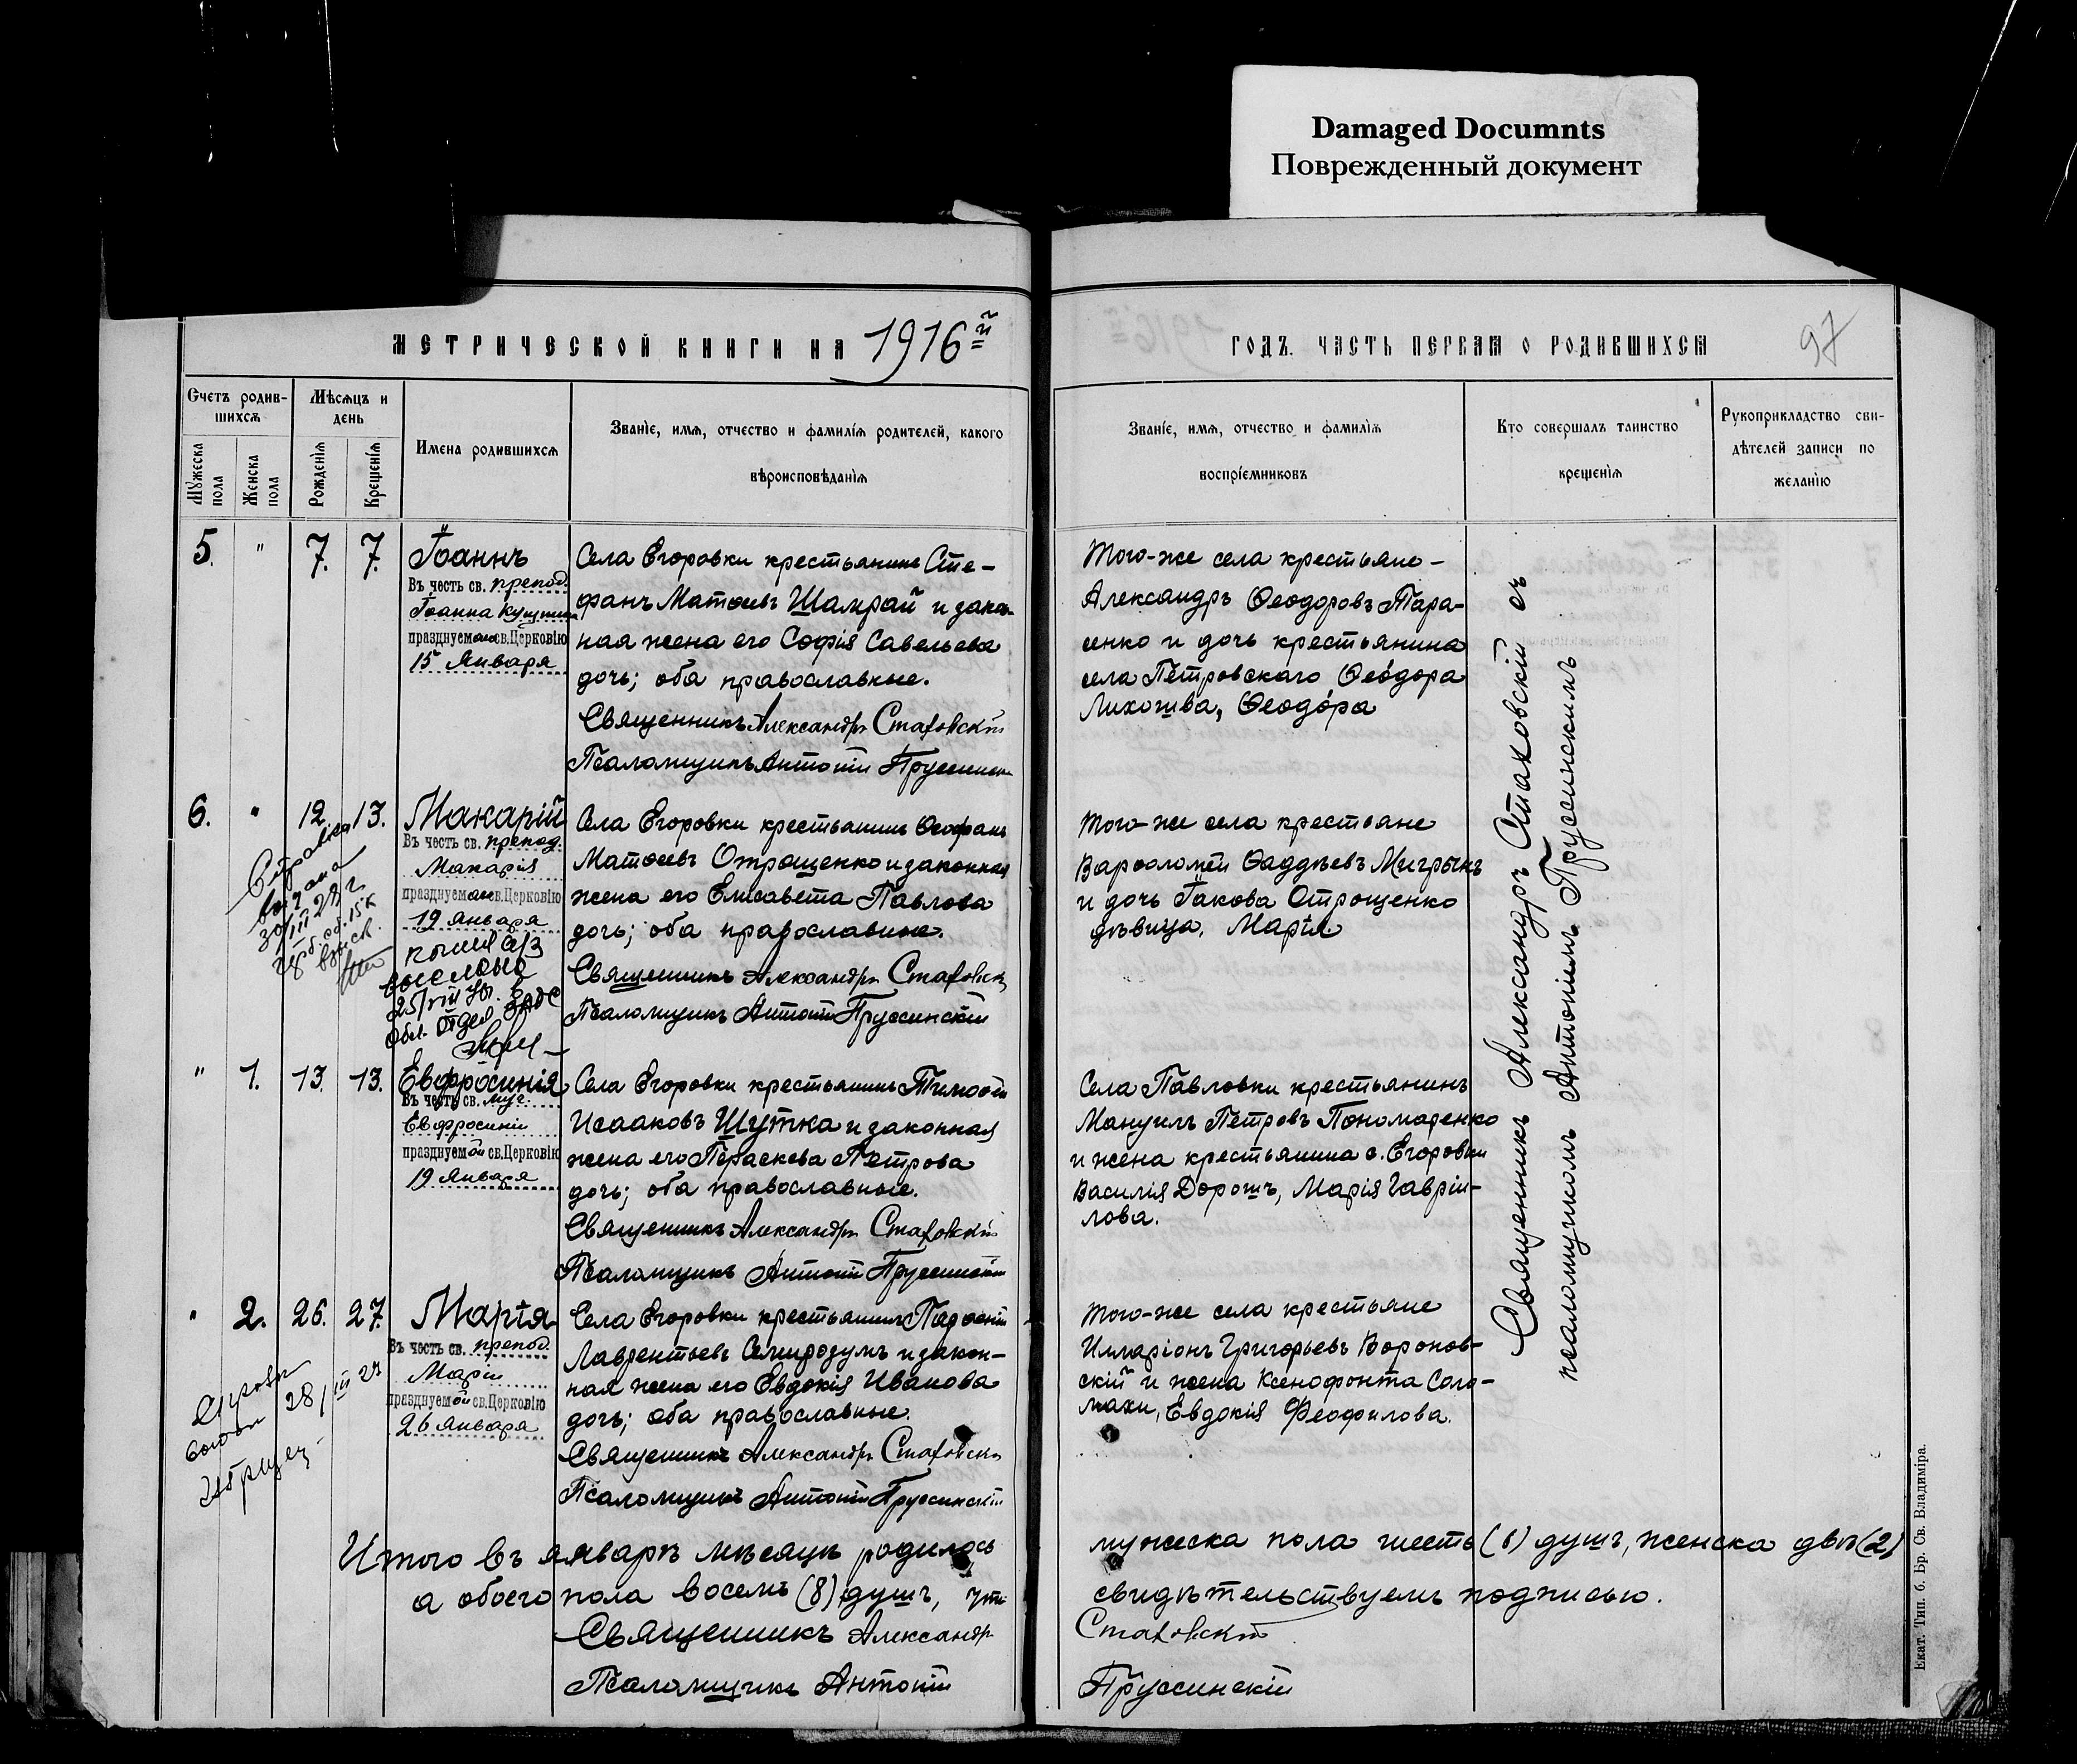 Damaged Documnts
Поврежденный документ
МЕТРИЧЕСКОЙ КНИГИ НА 1916й
ГОДЪ. ЧАСТЬ ПЕРВАЯ О РОДИВШИХСЯ
97
Счетъ родив-
шихся
Мужеска
пола
Женска
пола
Мѣсяцъ и
день
Рожденія
Крещенія
Имена родившихся
Званіе, имя, отчество и фамилія родителей, какого
вѣроисповѣданія
Званіе, имя, отчество и фамилія
воспріемниковъ
Кто совершалъ таинство
крещенія
Рукоприкладство сви-
дѣтелей записи по
желанію
5. " 7. 7.
Іоаннъ
Въ честь св. препод.
Іоанна
празднуемаго св. Церковію
15 Января
Села Егоровки крестьянинъ Сте-
фанъ Матѳіевъ Шамрай и закон-
ная жена его Софія Савельева
дочь; оба православные.
Священникъ Александръ Стаховскій
Псаломщикъ Антоній Пруссинскій
Того-же села крестьяне -
Александръ Ѳеодоровъ Тара-
сенко и дочь крестьянина
села Петровскаго Ѳеодора
Ѳеодора
6. " 12. 13.
Макарій
Въ честь св. препод.
Макарія
празднуемаго св. Церковію
19 Января
выслана
25/VIII
Обл. отдел
Справка
выдана
30/III
Села Егоровки крестьянинъ Ѳеофанъ
Матѳіевъ Отрощенко и законная
жена его Елисавета Павлова
дочь; оба православные.
Священникъ Александръ Стаховскій
Псаломщикъ Антоній Пруссинскій
Того-же села крестьяне
Варѳоломей Ѳаддѣевъ
и дочь Іакова Отрощенко
дѣвица, Марія
" 1. 13. 13.
Евфросинія
Въ честь св. муч.
Евфросиніи
празднуемой св. Церковію
19 Января
Села Егоровки крестьянинъ Тимоѳей
Исааковъ Шутка и законная
жена его Параскева Петрова
дочь; оба православные.
Священникъ Александръ Стаховскій
Псаломщикъ Антоній Пруссинскій
Села Павловки крестьянинъ
Мануилъ Петровъ Пономаренко
и жена крестьянина с. Егоровки
Василія Дорошъ, Марія Гаврии-
лова.
" 2. 26. 27.
Марія
Въ честь св. препод.
Маріи
празднуемой св. Церковію
26 Января
28/III 27
Села Егоровки крестьянинъ Парѳеній
Лаврентьевъ Семирозумъ и закон-
ная жена его Евдокія Иванова
дочь; оба православные.
Священникъ Александръ Стаховскій
Псаломщикъ Антоній Пруссинскій
Того-же села крестьяне
Илларіонъ Григорьевъ Воронов-
скій и жена Ксенофонта Соло-
махи, Евдокія Феофилова.
Священникъ Александръ Стаховскій съ
псаломщикомъ Антоніемъ Пруссинскимъ
Итого въ январѣ мѣсяцѣ родилось мужеска пола шесть (6) душъ, женска двѣ (2)
а обоего пола восемь (8) душъ, что свидѣтельствуемъ подписью.
Священникъ Александръ Стаховскій
Псаломщикъ Антоній Пруссинскій
Екат. Тип. б. Бр. Св. Владиміра.